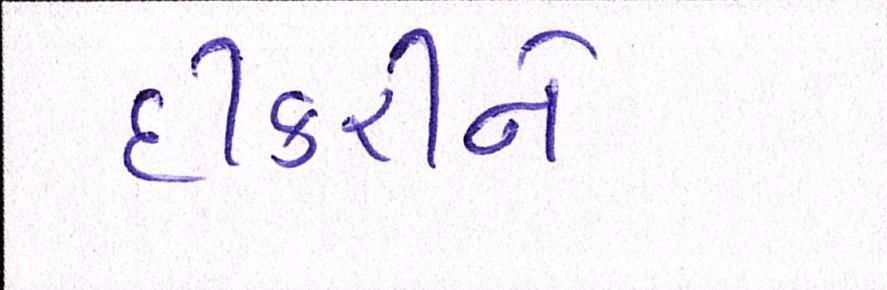 દીકરીને